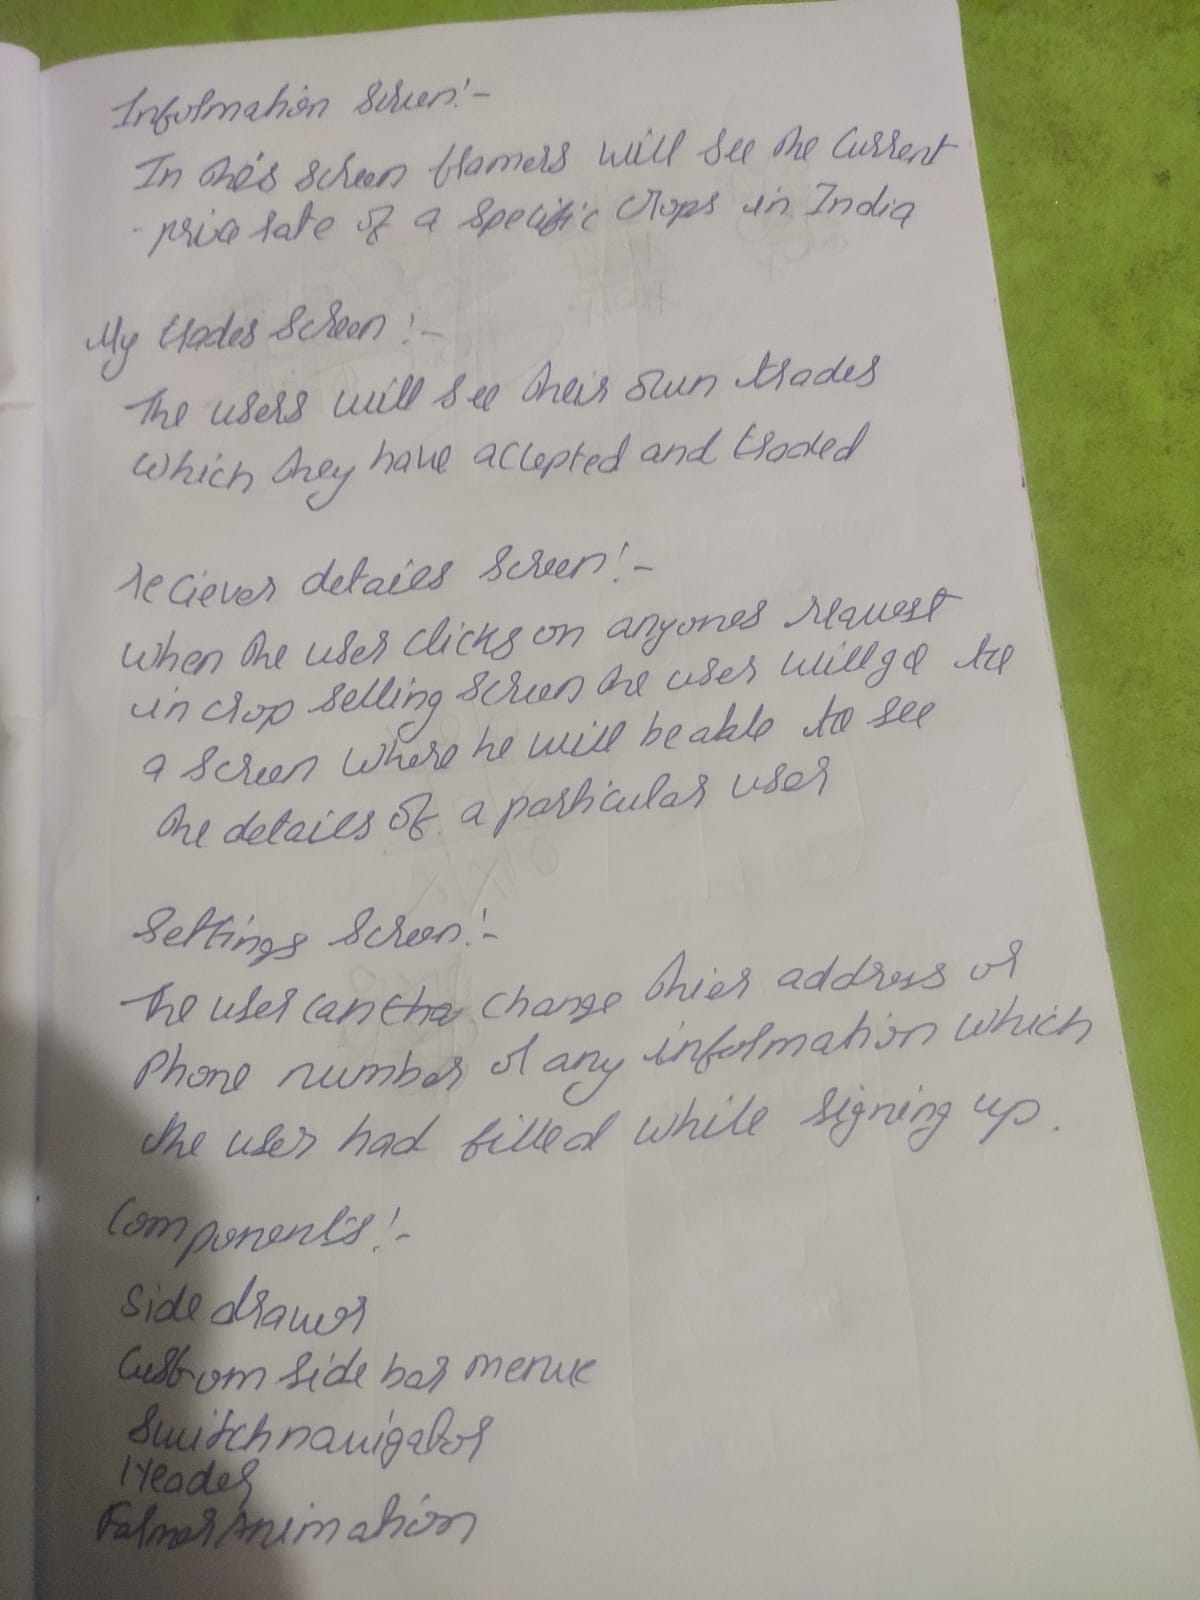 Information Screen:-
In this screen framers will see the current
price rate of a specific crops in India
My trades Screen:-
The users will see their own trades
which they have accepted and traded
reciever details Screen:-
when the user clicks on anyones request
in crop selling screen the user will go to
a screen where he will be able to see
the details of a particular user
Settings Screen:-
The user can cha change thier address or
Phone number or any information which
the user had filled while signing up.
Components:-
Side drawer
Custom side bar menue
Switch navigator
Header
Farmer Animation